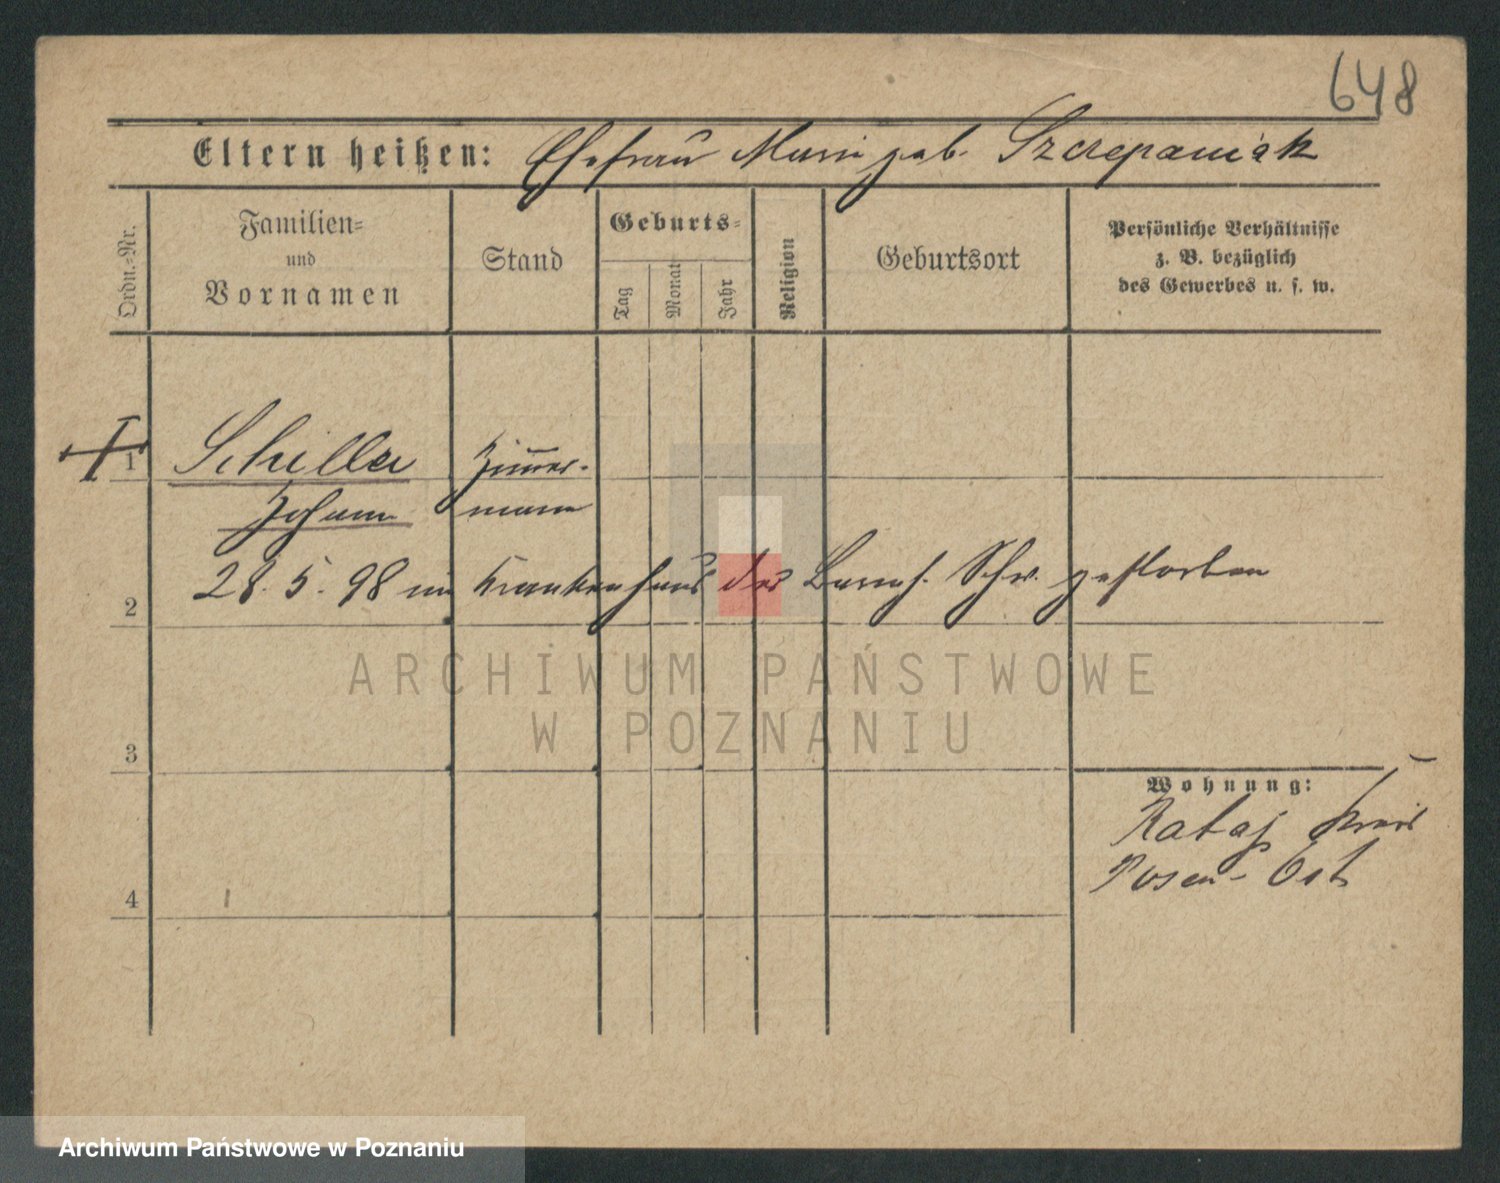 648
Eltern heißen: Ehefrau Marie geb. Szczepaniak
Ordn.-Nr.
Familien-
und
Vornamen
Stand
Geburts-
Tag
Monat
Jahr
Religion
Geburtsort
Persönliche Verhältnisse
z. B. bezüglich
des Gewerbes u. s. w.
1
Schiller
Johann
Zimmer-
mann
2
28. 5. 98 im Krankenhaus der Barmh. Schw. gestorben
ARCHIWUM PAŃSTWOWE
W POZNANIU
3
Wohnung:
Rataj Kreis
Posen-Ost
4
Archiwum Państwowe w Poznaniu